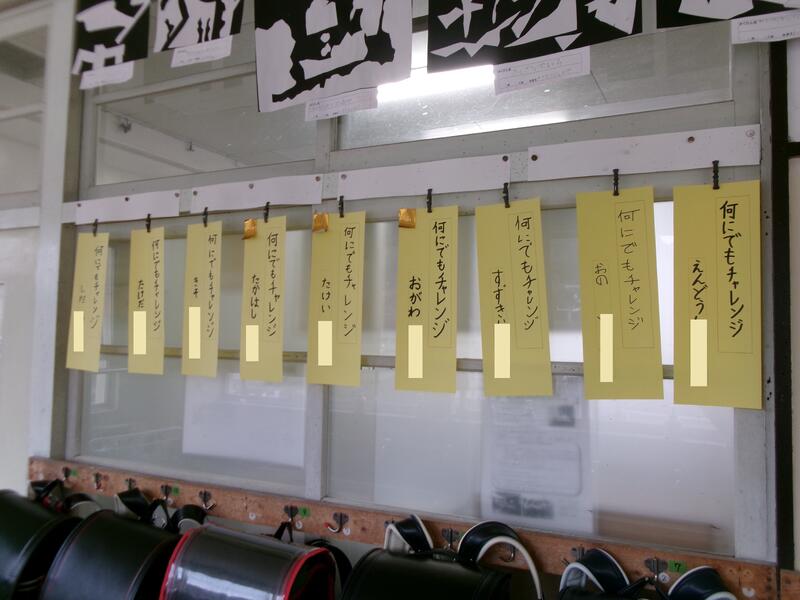 何にでもチャレンジ
えんどう
何にでもチャレンジ
おの
何にでもチャレンジ
すずき
何にでもチャレンジ
おがわ
何にでもチャレンジ
たけい
何にでもチャレンジ
たかはし
何にでもチャレンジ
何にでもチャレンジ
たけだ
何にでもチャレンジ
7